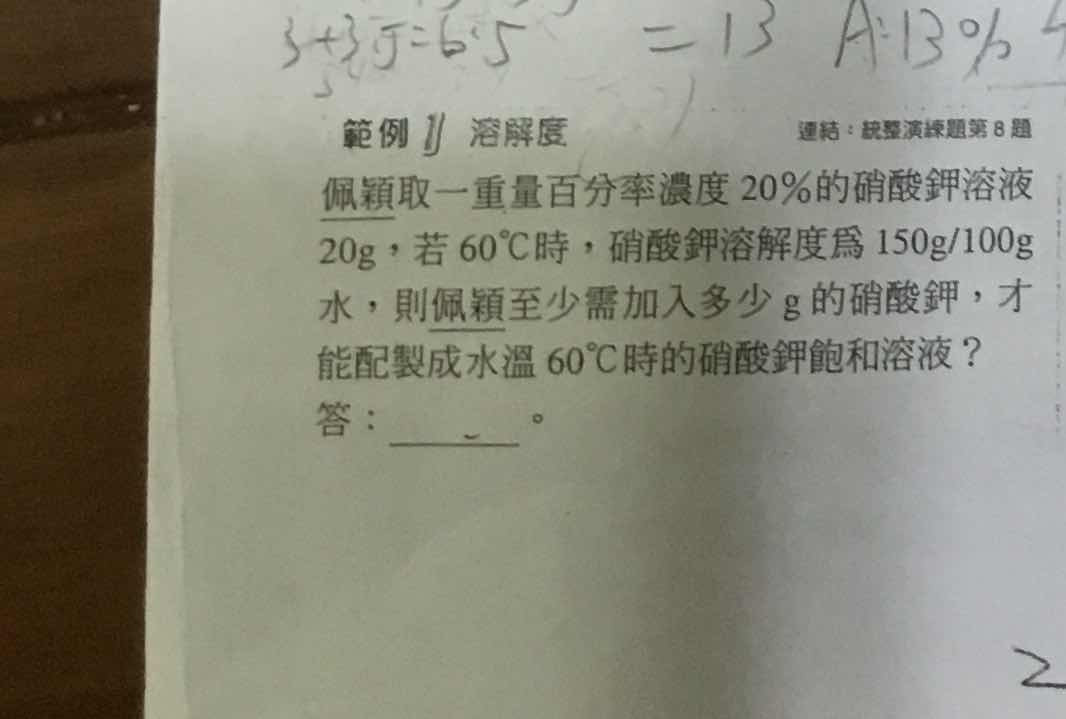 3+3.5=6.5 =13 A:13%
範例 1 溶解度 連結：統整演練題第8題
佩穎取一重量百分率濃度20%的硝酸鉀溶液
20g，若60℃時，硝酸鉀溶解度為150g/100g
水，則佩穎至少需加入多少g的硝酸鉀，才
能配製成水溫60℃時的硝酸鉀飽和溶液？
答：＿＿＿。
2